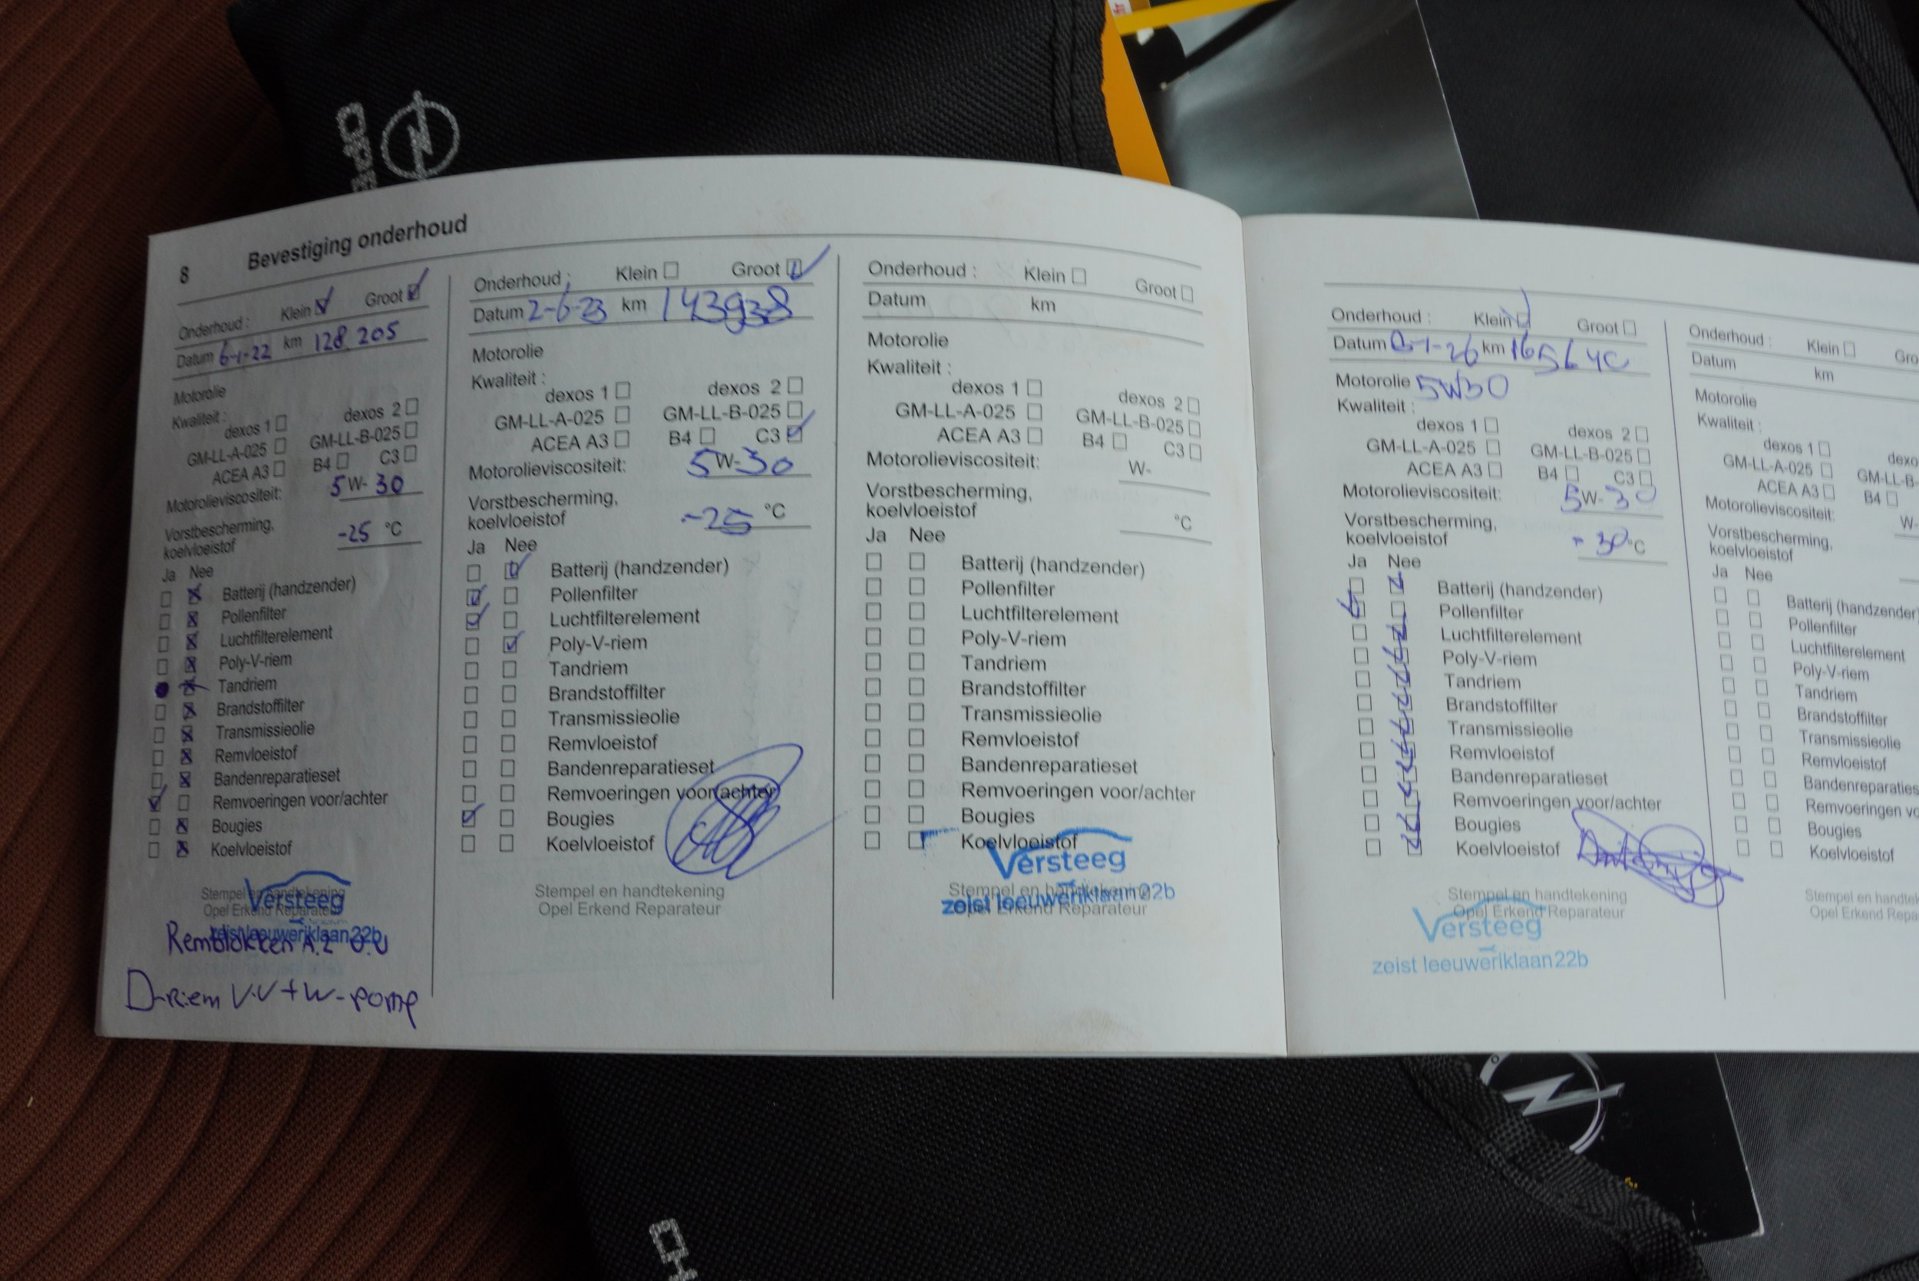 OPEL
8 Bevestiging onderhoud
Onderhoud : Klein Groot
Datum 6-1-22 km 128 205
Motorolie
Kwaliteit :
dexos 1 dexos 2
GM-LL-A-025 GM-LL-B-025
ACEA A3 B4 C3
Motorolieviscositeit: 5W-30
Vorstbescherming,
koelvloeistof -25 °C
Ja Nee
Batterij (handzender)
Pollenfilter
Luchtfilterelement
Poly-V-riem
Tandriem
Brandstoffilter
Transmissieolie
Remvloeistof
Bandenreparatieset
Remvoeringen voor/achter
Bougies
Koelvloeistof
Stempel en handtekening
Opel Erkend Reparateur
Versteeg
zeist leeuweriklaan 22b
Remblokken A.Z V.V
D-riem V.V + W-pomp
Onderhoud : Klein Groot
Datum 2-6-23 km 143938
Motorolie
Kwaliteit :
dexos 1 dexos 2
GM-LL-A-025 GM-LL-B-025
ACEA A3 B4 C3
Motorolieviscositeit: 5W-30
Vorstbescherming,
koelvloeistof -25 °C
Ja Nee
Batterij (handzender)
Pollenfilter
Luchtfilterelement
Poly-V-riem
Tandriem
Brandstoffilter
Transmissieolie
Remvloeistof
Bandenreparatieset
Remvoeringen voor/achter
Bougies
Koelvloeistof
Stempel en handtekening
Opel Erkend Reparateur
Onderhoud : Klein Groot
Datum km
Motorolie
Kwaliteit :
dexos 1 dexos 2
GM-LL-A-025 GM-LL-B-025
ACEA A3 B4 C3
Motorolieviscositeit: W-
Vorstbescherming,
koelvloeistof °C
Ja Nee
Batterij (handzender)
Pollenfilter
Luchtfilterelement
Poly-V-riem
Tandriem
Brandstoffilter
Transmissieolie
Remvloeistof
Bandenreparatieset
Remvoeringen voor/achter
Bougies
Koelvloeistof
Versteeg
Stempel en handtekening
zeist leeuweriklaan 22b
Opel Erkend Reparateur
Onderhoud : Klein Groot
Datum km
Motorolie 5W30
Kwaliteit :
dexos 1 dexos 2
GM-LL-A-025 GM-LL-B-025
ACEA A3 B4 C3
Motorolieviscositeit: 5W-30
Vorstbescherming,
koelvloeistof - 30 °C
Ja Nee
Batterij (handzender)
Pollenfilter
Luchtfilterelement
Poly-V-riem
Tandriem
Brandstoffilter
Transmissieolie
Remvloeistof
Bandenreparatieset
Remvoeringen voor/achter
Bougies
Koelvloeistof
Stempel en handtekening
Opel Erkend Reparateur
Versteeg
zeist leeuweriklaan 22b
Onderhoud : Klein Gro
Datum km
Motorolie
Kwaliteit :
dexos 1 dexo
GM-LL-A-025 GM-LL-B-
ACEA A3 B4
Motorolieviscositeit: W-
Vorstbescherming,
koelvloeistof
Ja Nee
Batterij (handzender)
Pollenfilter
Luchtfilterelement
Poly-V-riem
Tandriem
Brandstoffilter
Transmissieolie
Remvloeistof
Bandenreparaties
Remvoeringen vo
Bougies
Koelvloeistof
Stempel en handtek
Opel Erkend Repa